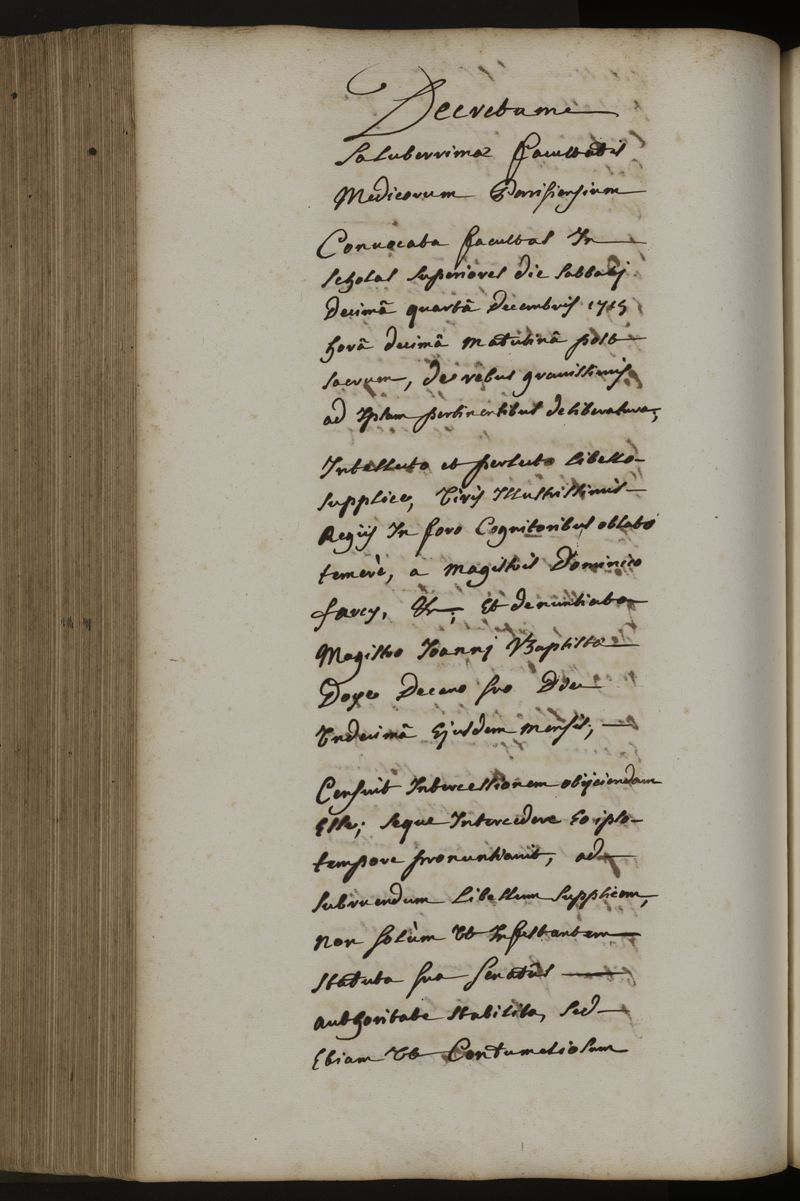 Decretum
Saluberrimæ facultatis
Medicorum Parisiensium
Convocata facultas In
scholas superiores die sabbatj
decimâ quartâ decembris 1715
horâ decimâ matutinâ post
sacrum, de rebus gravissimis
ad Ipsam pertinentibus deliberatura;
Intellecto et perlecto libello
supplice, Viris Illustrissimis
Regiis In foro Cognitoribus oblato
temerè, a magistris Dominico
farcy, &c; Et denuntiato
Magistro Joannj Baptistæ
Doye Decano suo Die
Undecimâ Ejusdem mensis;
Censuit Intercessionem objiciendam
Esse; seque Intercedere Eo ipso
tempore pronuntiavit, ad
subruendum libellum supplicem,
non solùm Ut Infestantem
statuta sua senatûs
authoritate stabilita, sed
Etiam Ut Contumeliosum